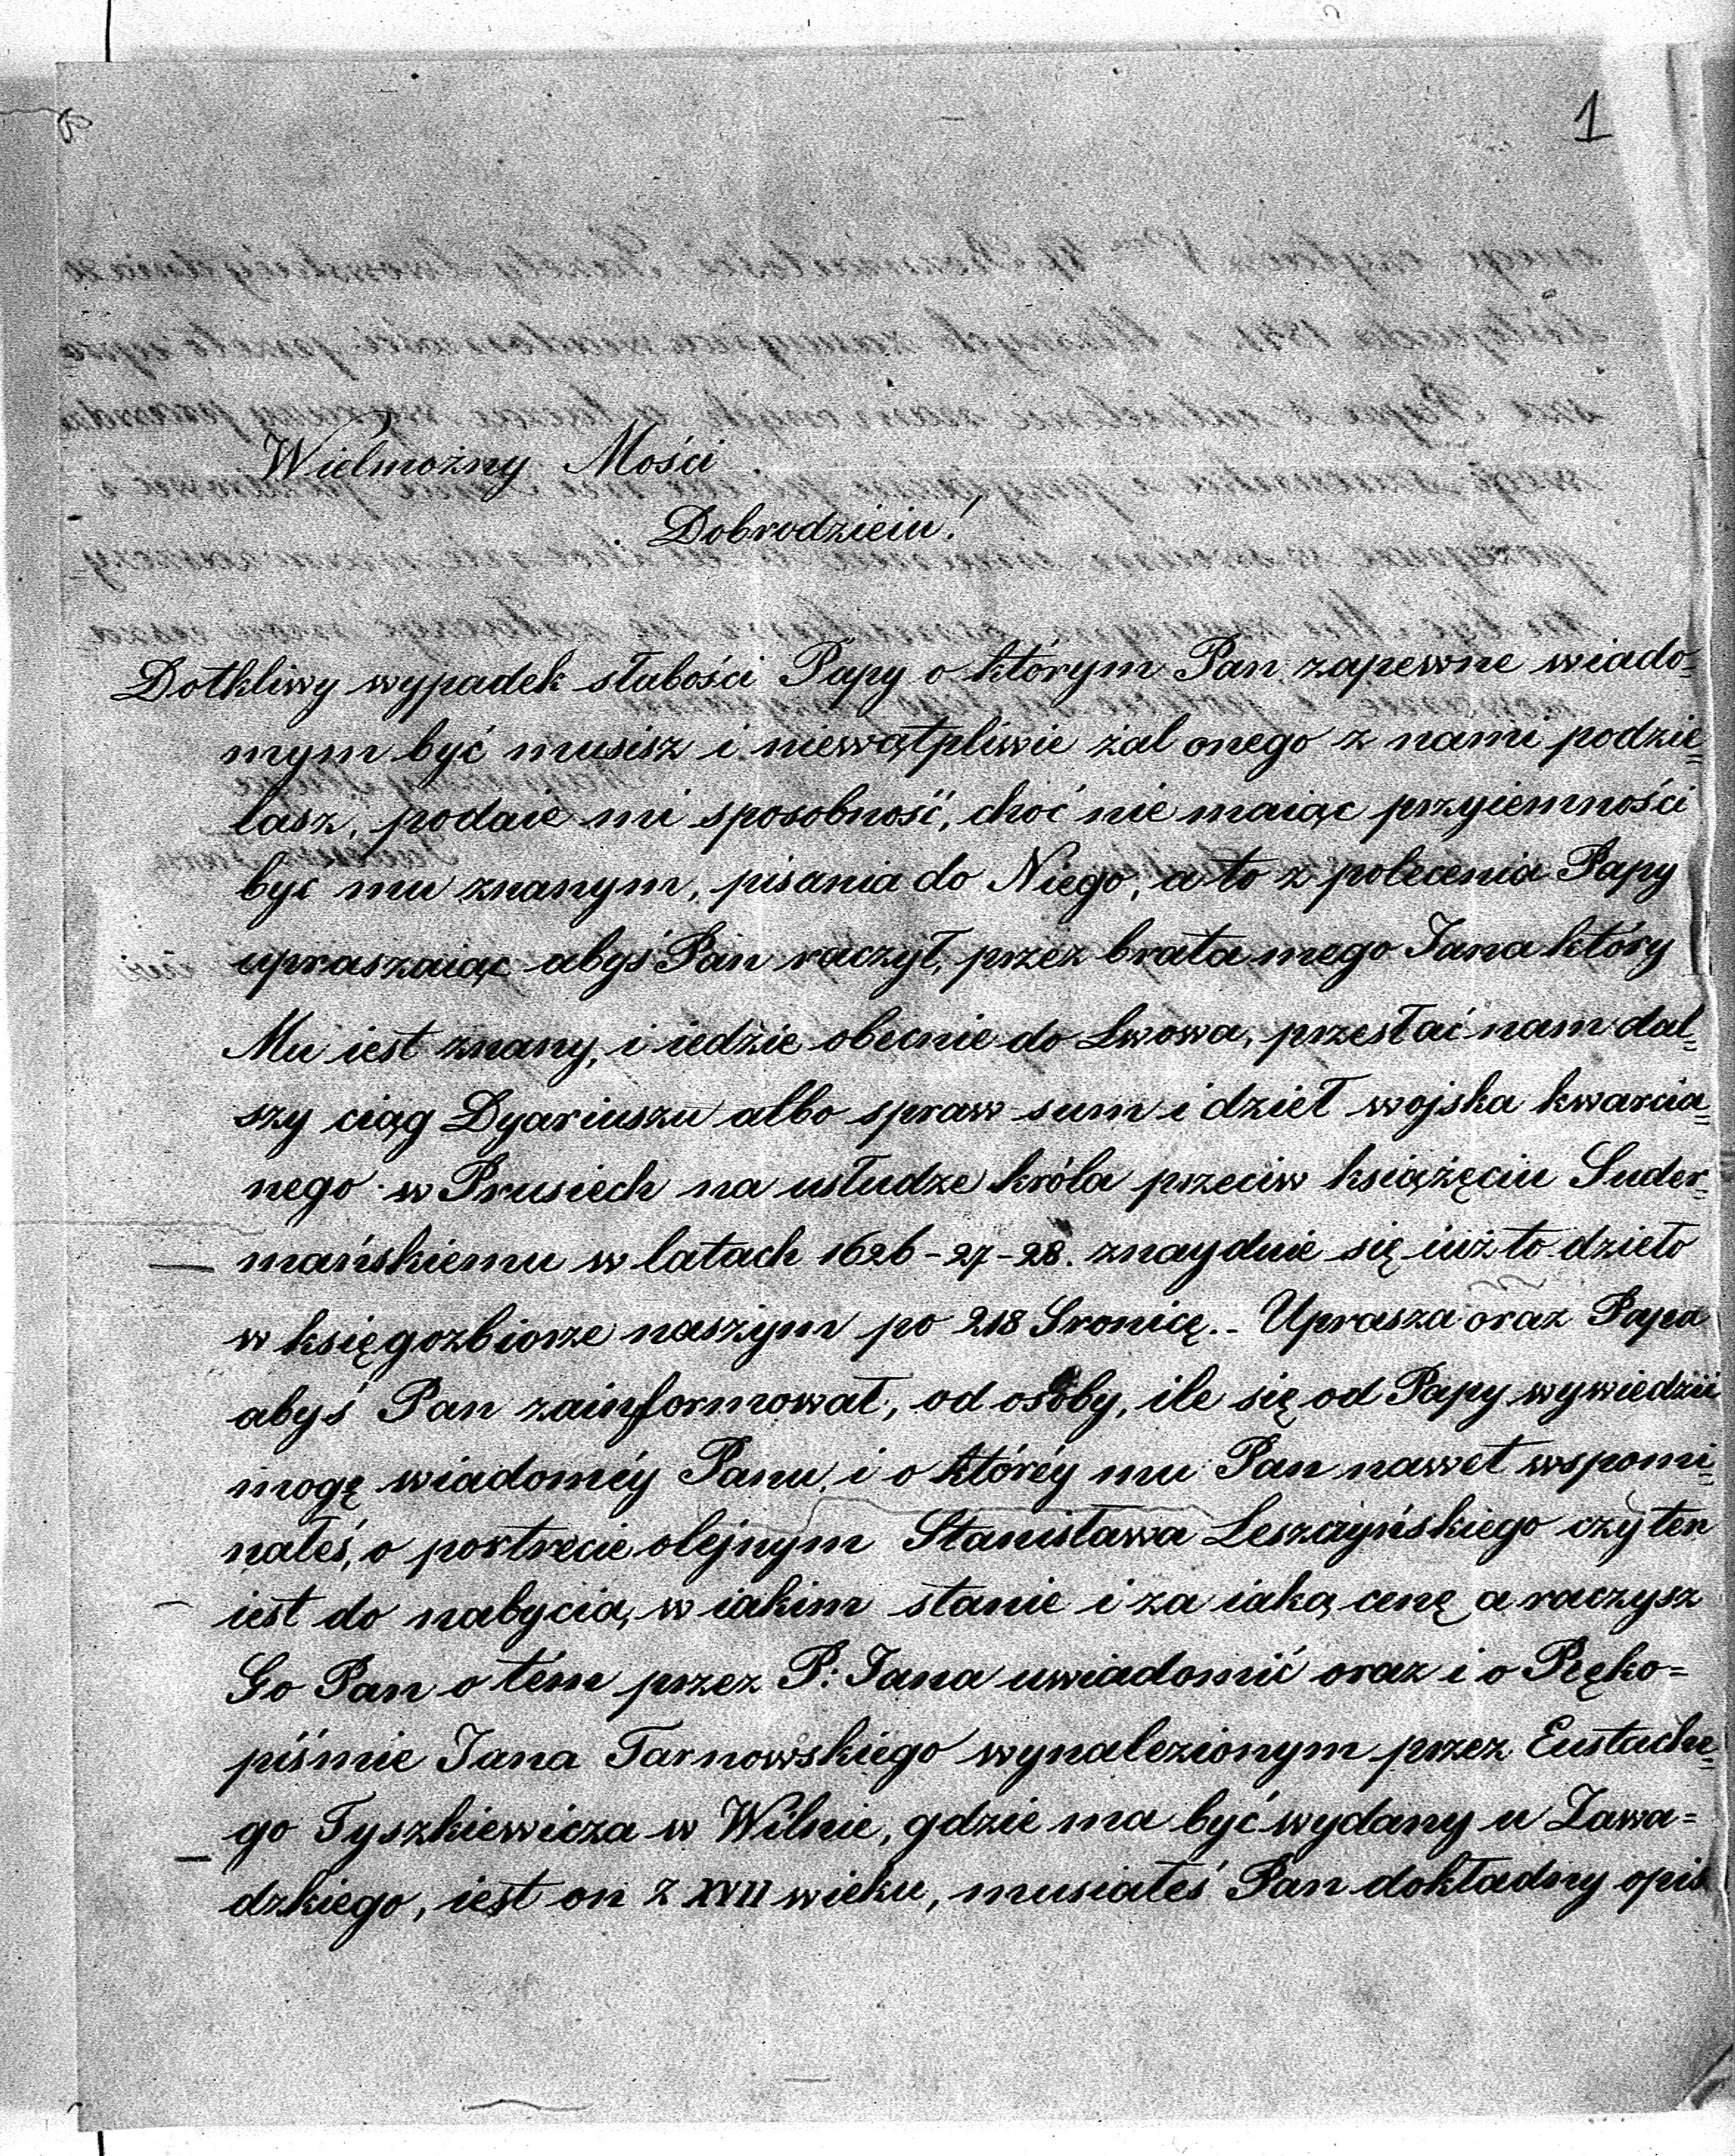 1
Wielmożny Mości
Dobrodzieiu!
Dotkliwy wypadek słabości Papy o którym Pan zapewne wiado=
mym być musisz i niewątpliwie żal onego z nami podzie=
lasz, podaie mi sposobność, choć nie maiąc przyiemności
być mu znanym, pisania do Niego, a to z polecenia Papy
upraszaiąc abyś Pan raczył, przez brata mego Jana który
Mu iest znany, i iedzie obecnie do Lwowa, przesłać nam dal=
szy ciąg Dyariuszu albo spraw sum i dzieł wojska kwarcia=
nego w Prusiech na usłudze króla przeciw książęciu Suder=
mańskiemu w latach 1626-27-28. znayduie się iuż to dzieło
w księgozbiorze naszym po 218 Sronicę.- Uprasza oraz Papa
abyś Pan zainformował, od osoby, ile się od Papy wywiedzić
mogę wiadoméy Panu, i o któréy mu Pan nawet wspomi=
nałeś, o portrecie olejnym Stanisława Leszczyńskiego czy ten
iest do nabycia, w iakim stanie i za iaką cenę a raczysz
Go Pan o tém przez P: Jana uwiadomić oraz i o Ręko=
piśmie Jana Tarnowskiego wynalezionym przez Eustache=
go Tyszkiewicza w Wilnie, gdzie ma być wydany u Zawa=
dzkiego, iest on z XVII wieku, musiałeś Pan dokładny opis